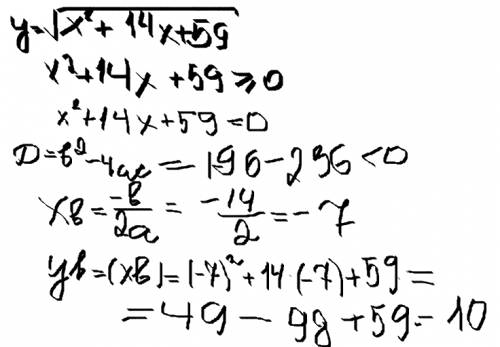 y=√x²+14x+59
x²+14x+59≥0
x²+14x+59=0
D=b²-4ac=196-236<0
xв=-b/2a=-14/2=-7
yв=(xв)=(-7)²+14·(-7)+59=
=49-98+59=10